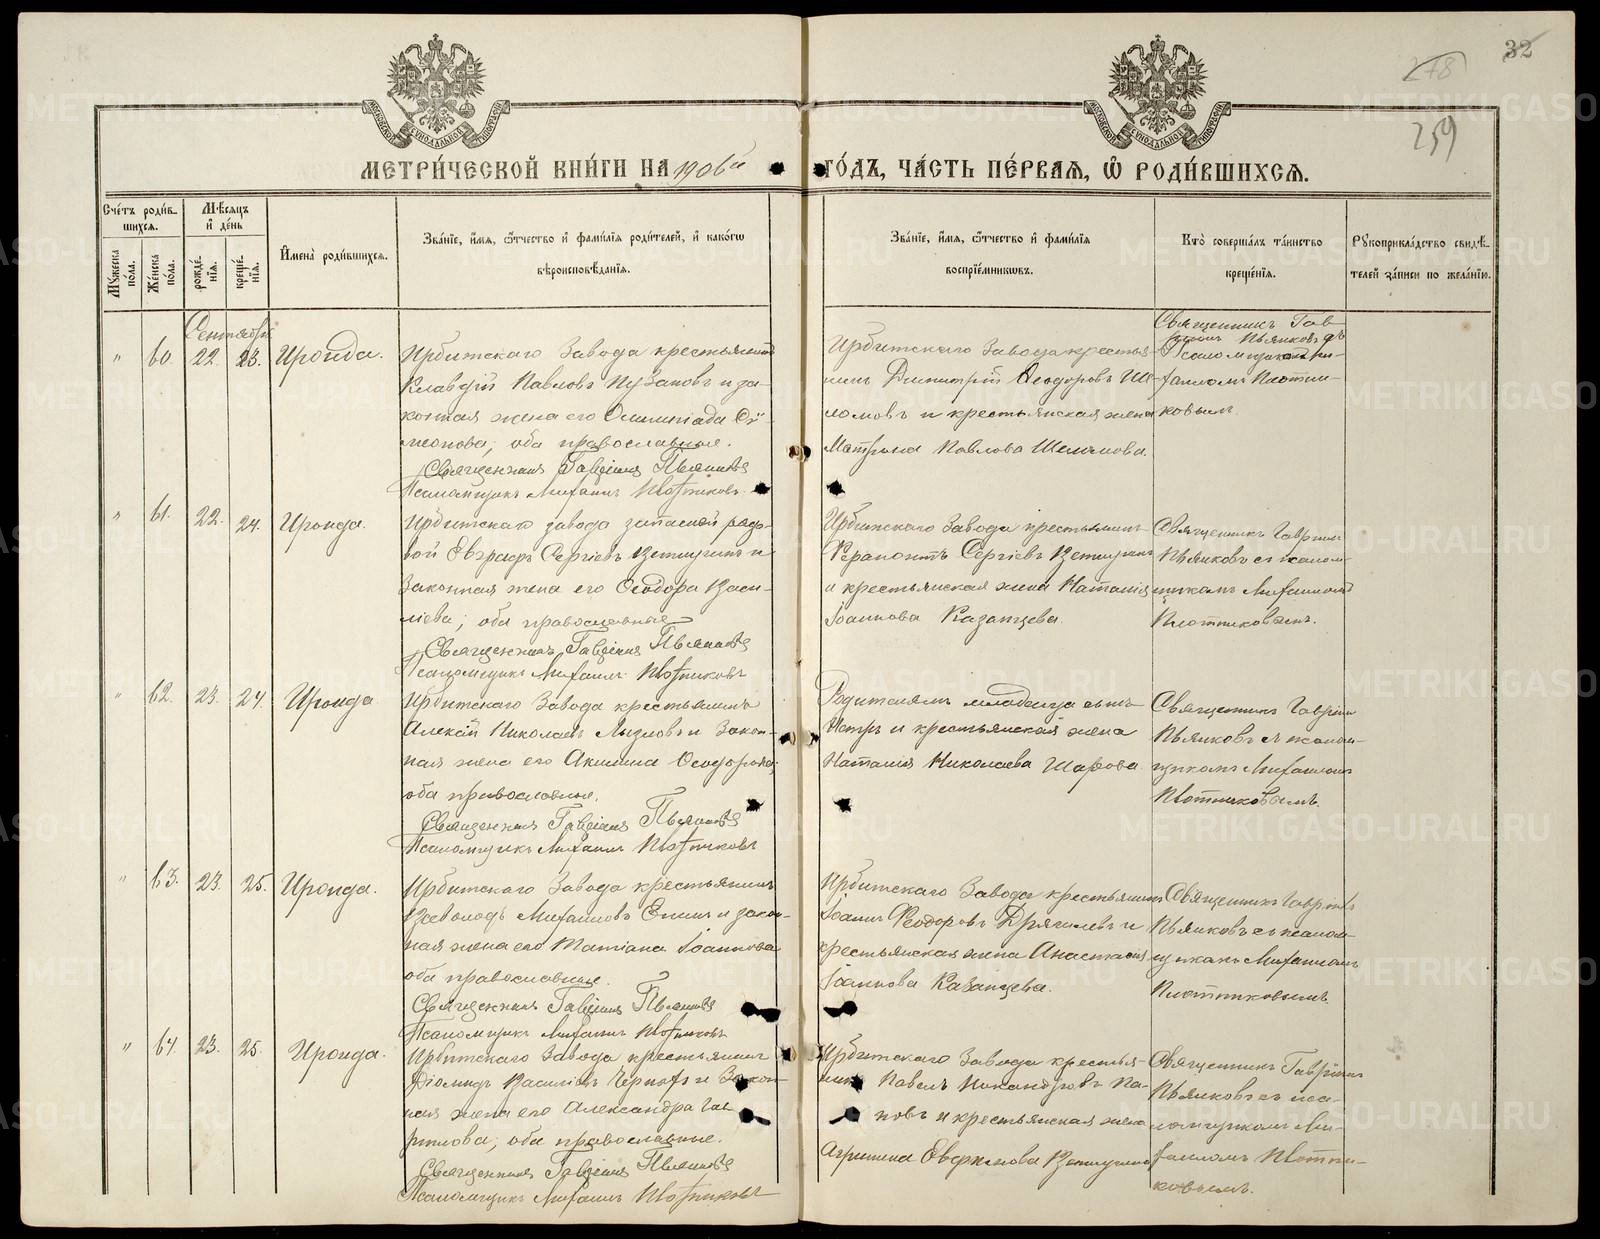 32
278
259
МОСКОВСКОЙ СѴНОДАЛЬНОЙ ТИПОГРАФІИ
МОСКОВСКОЙ СѴНОДАЛЬНОЙ ТИПОГРАФІИ
МЕТРИ́ЧЕСКОЙ КНИ́ГИ НА 1906й ГО́ДЪ, ЧА́СТЬ ПЕ́РВАЯ, Ѡ҆ РОДИ́ВШИХСЯ.
Сче́тъ роди́в-
шихся.
Мѣ́сяцъ
и҆ де́нь
Му́жеска
пола.
Же́нска
пола.
рожде́-
нїѧ.
креще́-
нїѧ.
И҆мена̀ роди́вшихся.
Зва́нїе, и҆́мѧ, ѻ҆́тчество и҆ фамѝлїѧ роди́телей, и҆ како́гѡ
вѣроисповѣ́данїѧ.
Зва́нїе, и҆́мѧ, ѻ҆́тчество и҆ фами́лїѧ
воспрїе́мникѡвъ.
Кто̀ соверша́лъ та́инство
креще́нїѧ.
Рꙋкоприкла́дство свидѣ́-
телей за́писи по жела́нїю.
Сентябрь
" 60. 22. 23. Ироида.
Ирбитскаго Завода крестьянинъ
Клавдій Павловъ Пузановъ и за-
конная жена его Олимпіада Сѵ-
меонова, оба православные.
Священникъ Гавріилъ Пьянковъ
Псаломщикъ Михаилъ Плотниковъ
Ирбитскаго Завода крестья-
нинъ Димитрій Ѳеодоровъ Ше-
ломовъ и крестьянская жена
Матрона Павлова Шеломова.
Священникъ Гав-
ріилъ Пьянковъ съ
Псаломщикомъ Ми-
хаиломъ Плотни-
ковымъ.
" 61. 22. 24. Ироида.
Ирбитскаго завода запасной рядо-
вой Евграфъ Сергіевъ Ветлугинъ и
Законная жена его Ѳеодора Васи-
ліева, оба православные
Священникъ Гавріилъ Пьянковъ
Псаломщикъ Михаилъ Плотниковъ
Ирбитскаго Завода крестьянинъ
Ѳерапонтъ Сергіевъ Ветлугинъ
и крестьянская жена Наталія
Іоаннова Казанцева.
Священникъ Гавріилъ
Пьянковъ съ псалом-
щикомъ Михаиломъ
Плотниковымъ.
" 62. 23. 24. Ироида
Ирбитскаго Завода крестьянинъ
Алексѣй Николаевъ Лызловъ и Закон-
ная жена его Акилина Ѳеодорова,
оба православные.
Священникъ Гавріилъ Пьянковъ
Псаломщикъ Михаилъ Плотниковъ
Родителямъ младенца сынъ
Петръ и крестьянская жена
Наталія Николаева Шарова.
Священникъ Гавріилъ
Пьянковъ съ псалом-
щикомъ Михаиломъ
Плотниковымъ.
" 63. 23. 25. Ироида.
Ирбитскаго Завода крестьянинъ
Всеволодъ Михаиловъ Епинъ и закон-
ная жена его Татіана Іоаннова
оба православные.
Священникъ Гавріилъ Пьянковъ
Псаломщикъ Михаилъ Плотниковъ
Ирбитскаго Завода крестьянинъ
Іоаннъ Ѳеодоровъ Дрягилевъ и
крестьянская жена Анастасія
Іоаннова Казанцева.
Священникъ Гавріилъ
Пьянковъ съ псалом-
щикомъ Михаиломъ
Плотниковымъ.
" 64. 23. 25. Ироида.
Ирбитскаго Завода крестьянинъ
Діомидъ Василіевъ и Закон-
ная жена его Александра Гав-
рилова, оба православные.
Священникъ Гавріилъ Пьянковъ
Псаломщикъ Михаилъ Плотниковъ
Ирбитскаго Завода крестья-
нинъ Павелъ Никандровъ Па-
новъ и крестьянская жена
Агрипина Ветлугина
Священникъ Гавріилъ
Пьянковъ съ пса-
ломщикомъ Ми-
хаиломъ Плотни-
ковымъ.
METRIKI.GASO-URAL.RU